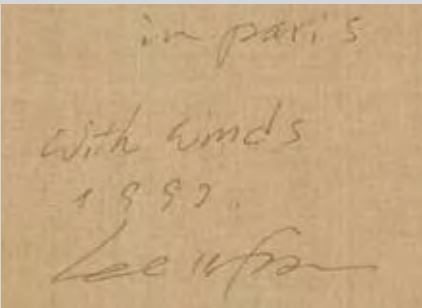 in paris
with winds
Lee Ufan